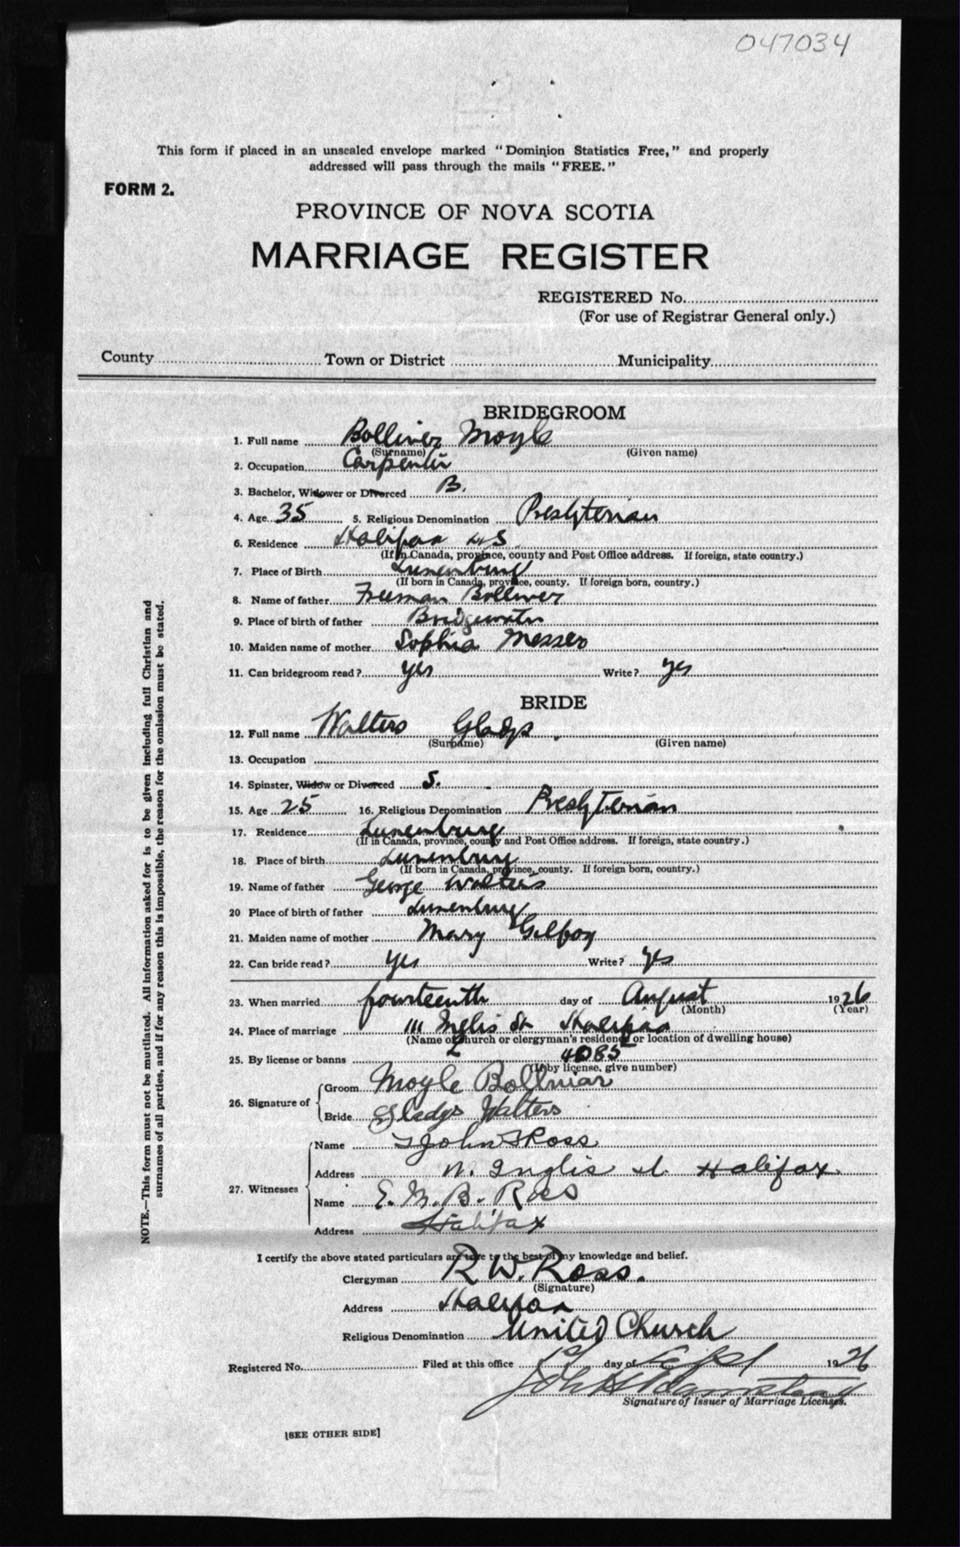 047034
This form if placed in an unsealed envelope marked "Dominion Statistics Free," and properly
addressed will pass through the mails "FREE."
FORM 2.
PROVINCE OF NOVA SCOTIA
MARRIAGE REGISTER
REGISTERED No.
(For use of Registrar General only.)
County Town or District Municipality
BRIDEGROOM
1. Full name Bolliver Moyle
(Surname) (Given name)
2. Occupation Carpenter
3. Bachelor, Widower or Divorced B.
4. Age 35 5. Religious Denomination Presbyterian
6. Residence Halifax N S
(If in Canada, province, county and Post Office address. If foreign, state country.)
7. Place of Birth Lunenburg
(If born in Canada, province, county. If foreign born, country.)
8. Name of father Freeman Bolliver
9. Place of birth of father Bridgewater
10. Maiden name of mother Sophia Messer
11. Can bridegroom read? yes Write? yes
BRIDE
12. Full name Walters Gladys
(Surname) (Given name)
13. Occupation
14. Spinster, Widow or Divorced S.
15. Age 25 16. Religious Denomination Presbyterian
17. Residence Lunenburg
(If in Canada, province, county and Post Office address. If foreign, state country.)
18. Place of birth Lunenburg
(If born in Canada, province, county. If foreign born, country.)
19. Name of father George Walters
20 Place of birth of father Lunenburg
21. Maiden name of mother Mary Gilfoy
22. Can bride read? yes Write? yes
23. When married fourteenth day of August 1926
(Month) (Year)
24. Place of marriage 111 Inglis St Halifax
(Name of church or clergyman's residence or location of dwelling house)
25. By license or banns L 4085
(If by license, give number)
26. Signature of
Groom Moyle Bolliver
Bride Gladys Walters
27. Witnesses
Name John Ross
Address Inglis st. Halifax
Name E. M. B. Ross
Address Halifax
I certify the above stated particulars are true to the best of my knowledge and belief.
Clergyman R. W. Ross.
(Signature)
Address Halifax
Religious Denomination United Church
Registered No. Filed at this office day of 1926
Signature of Issuer of Marriage Licenses.
[SEE OTHER SIDE]
NOTE.—This form must not be mutilated. All information asked for is to be given including full Christian and
surnames of all parties, and if for any reason this is impossible, the reason for the omission must be stated.